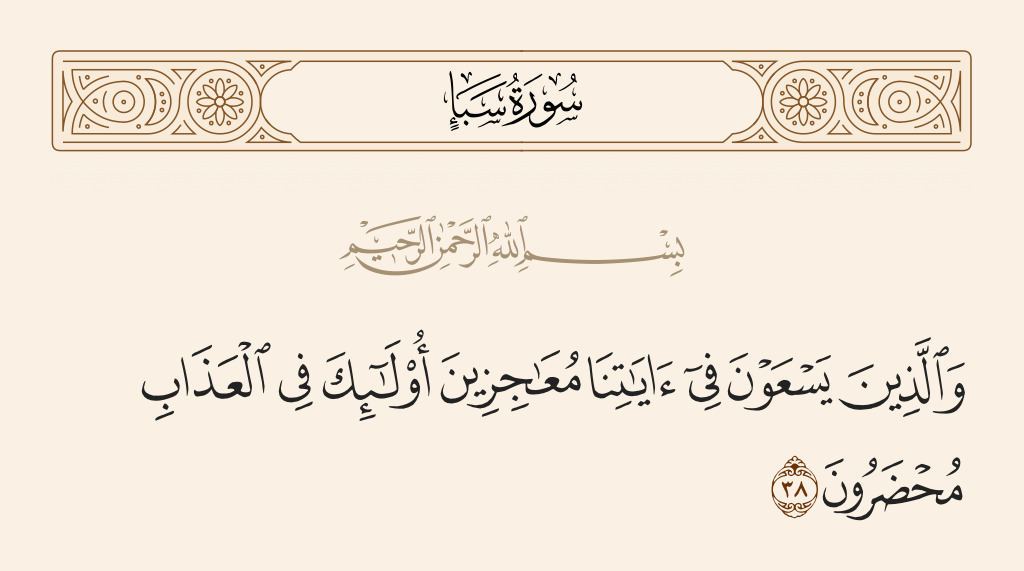 سُورَةُ سَبَإٍ
بِسْمِ ٱللَّهِ ٱلرَّحْمَٰنِ ٱلرَّحِيمِ
وَٱلَّذِينَ يَسْعَوْنَ فِىٓ ءَايَٰتِنَا مُعَٰجِزِينَ أُو۟لَٰٓئِكَ فِى ٱلْعَذَابِ
مُحْضَرُونَ ٣٨